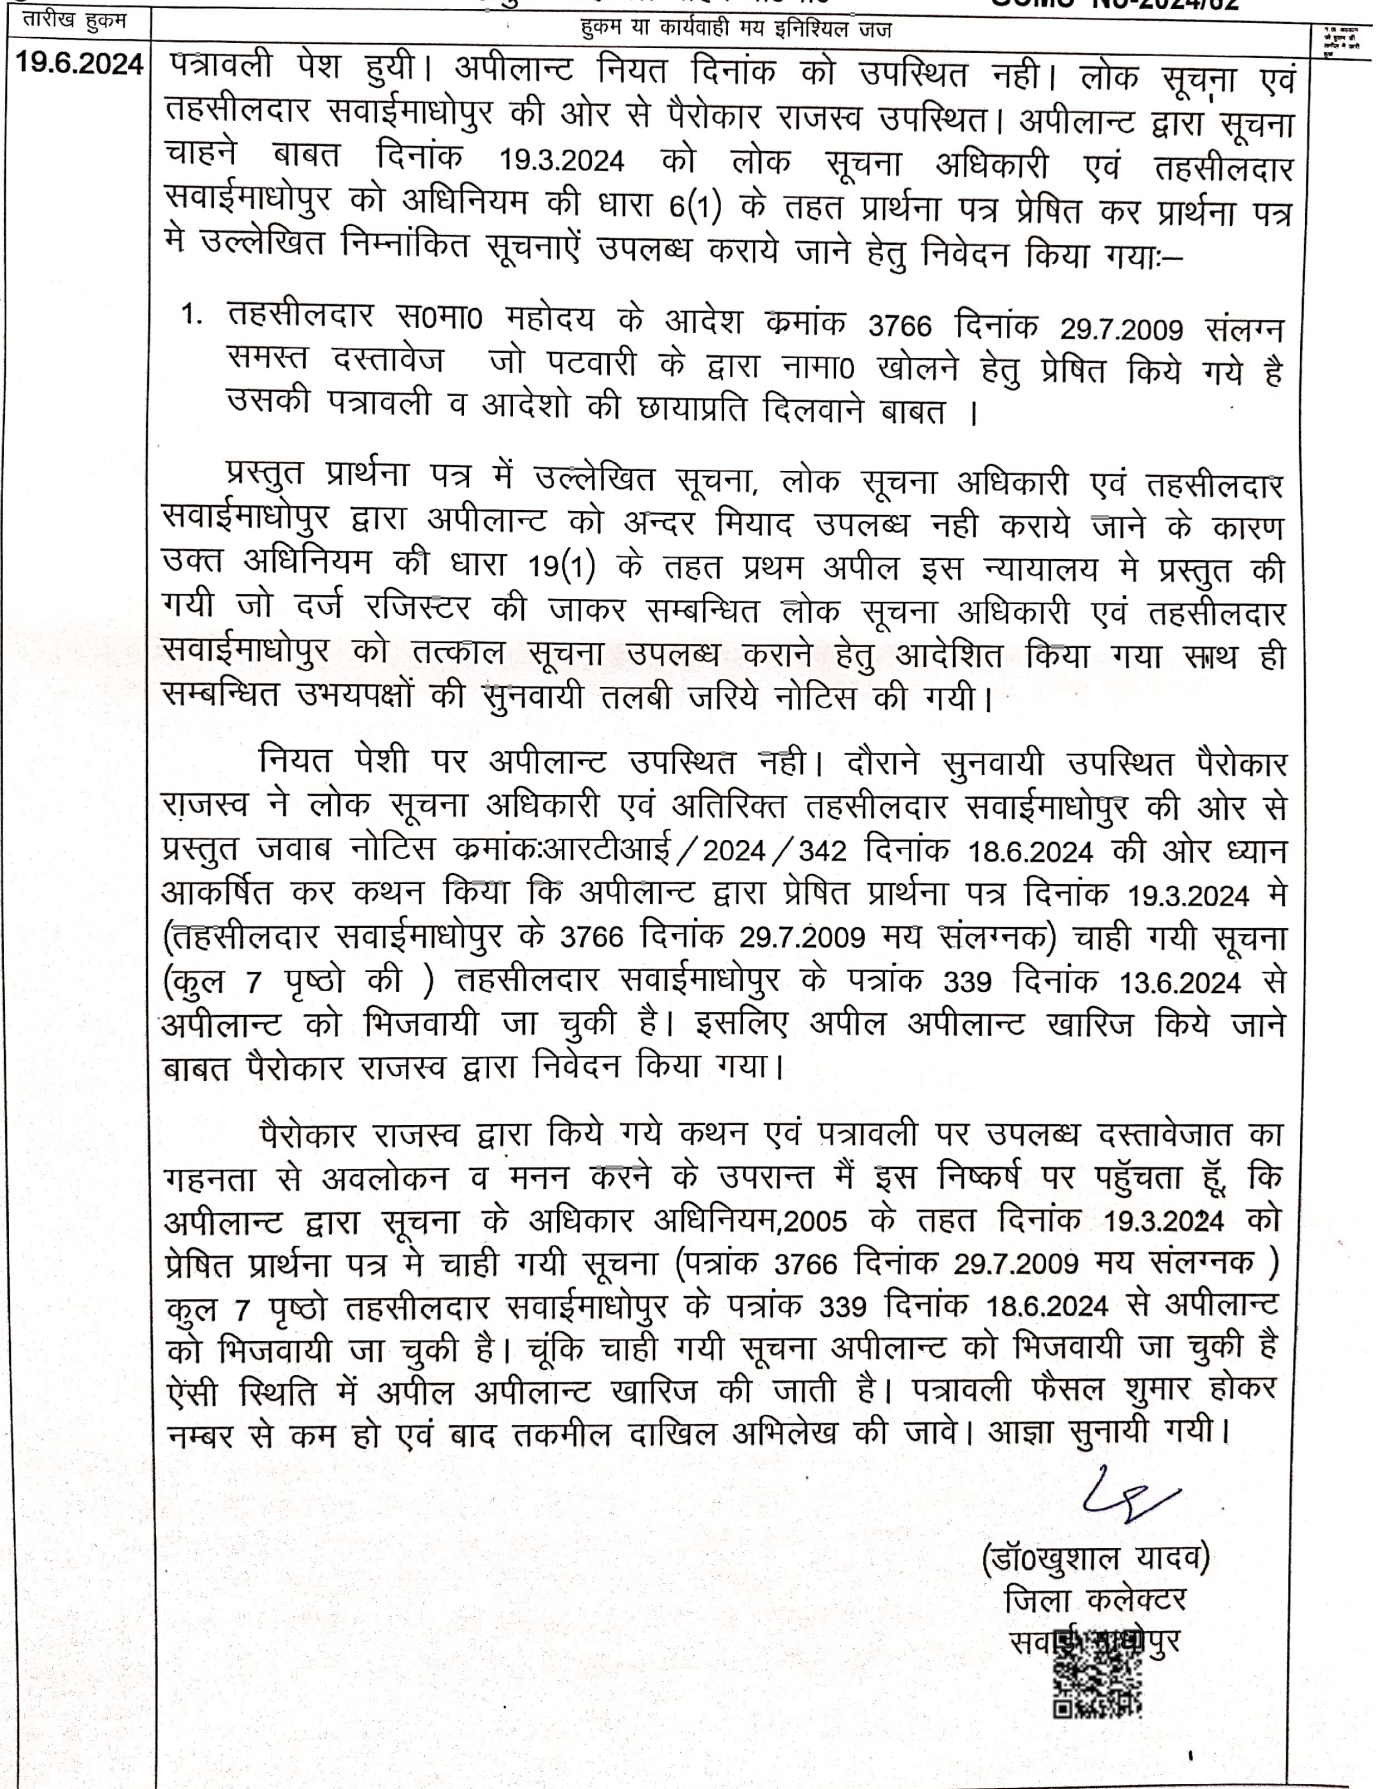 GCMC No-2024/62
तारीख हुकम
हुकम या कार्यवाही मय इनिश्यिल जज
19.6.2024
पत्रावली पेश हुयी। अपीलान्ट नियत दिनांक को उपस्थित नही। लोक सूचना एवं
तहसीलदार सवाईमाधोपुर की ओर से पैरोकार राजस्व उपस्थित। अपीलान्ट द्वारा सूचना
चाहने बाबत दिनांक 19.3.2024 को लोक सूचना अधिकारी एवं तहसीलदार
सवाईमाधोपुर को अधिनियम की धारा 6(1) के तहत प्रार्थना पत्र प्रेषित कर प्रार्थना पत्र
मे उल्लेखित निम्नांकित सूचनाऐं उपलब्ध कराये जाने हेतु निवेदन किया गयाः–
1. तहसीलदार स0मा0 महोदय के आदेश क्रमांक 3766 दिनांक 29.7.2009 संलग्न
समस्त दस्तावेज जो पटवारी के द्वारा नामा0 खोलने हेतु प्रेषित किये गये है
उसकी पत्रावली व आदेशो की छायाप्रति दिलवाने बाबत ।
प्रस्तुत प्रार्थना पत्र में उल्लेखित सूचना, लोक सूचना अधिकारी एवं तहसीलदार
सवाईमाधोपुर द्वारा अपीलान्ट को अन्दर मियाद उपलब्ध नही कराये जाने के कारण
उक्त अधिनियम की धारा 19(1) के तहत प्रथम अपील इस न्यायालय मे प्रस्तुत की
गयी जो दर्ज रजिस्टर की जाकर सम्बन्धित लोक सूचना अधिकारी एवं तहसीलदार
सवाईमाधोपुर को तत्काल सूचना उपलब्ध कराने हेतु आदेशित किया गया साथ ही
सम्बन्धित उभयपक्षों की सुनवायी तलबी जरिये नोटिस की गयी।
नियत पेशी पर अपीलान्ट उपस्थित नही। दौराने सुनवायी उपस्थित पैरोकार
राजस्व ने लोक सूचना अधिकारी एवं अतिरिक्त तहसीलदार सवाईमाधोपुर की ओर से
प्रस्तुत जवाब नोटिस क्रमांक:आरटीआई/2024/342 दिनांक 18.6.2024 की ओर ध्यान
आकर्षित कर कथन किया कि अपीलान्ट द्वारा प्रेषित प्रार्थना पत्र दिनांक 19.3.2024 मे
(तहसीलदार सवाईमाधोपुर के 3766 दिनांक 29.7.2009 मय संलग्नक) चाही गयी सूचना
(कुल 7 पृष्ठो की ) तहसीलदार सवाईमाधोपुर के पत्रांक 339 दिनांक 13.6.2024 से
अपीलान्ट को भिजवायी जा चुकी है। इसलिए अपील अपीलान्ट खारिज किये जाने
बाबत पैरोकार राजस्व द्वारा निवेदन किया गया।
पैरोकार राजस्व द्वारा किये गये कथन एवं पत्रावली पर उपलब्ध दस्तावेजात का
गहनता से अवलोकन व मनन करने के उपरान्त मैं इस निष्कर्ष पर पहुँचता हूँ, कि
अपीलान्ट द्वारा सूचना के अधिकार अधिनियम,2005 के तहत दिनांक 19.3.2024 को
प्रेषित प्रार्थना पत्र मे चाही गयी सूचना (पत्रांक 3766 दिनांक 29.7.2009 मय संलग्नक )
कुल 7 पृष्ठो तहसीलदार सवाईमाधोपुर के पत्रांक 339 दिनांक 18.6.2024 से अपीलान्ट
को भिजवायी जा चुकी है। चूंकि चाही गयी सूचना अपीलान्ट को भिजवायी जा चुकी है
ऐसी स्थिति में अपील अपीलान्ट खारिज की जाती है। पत्रावली फैसल शुमार होकर
नम्बर से कम हो एवं बाद तकमील दाखिल अभिलेख की जावे। आज्ञा सुनायी गयी।
(डॉ0खुशाल यादव)
जिला कलेक्टर
सवाई माधोपुर